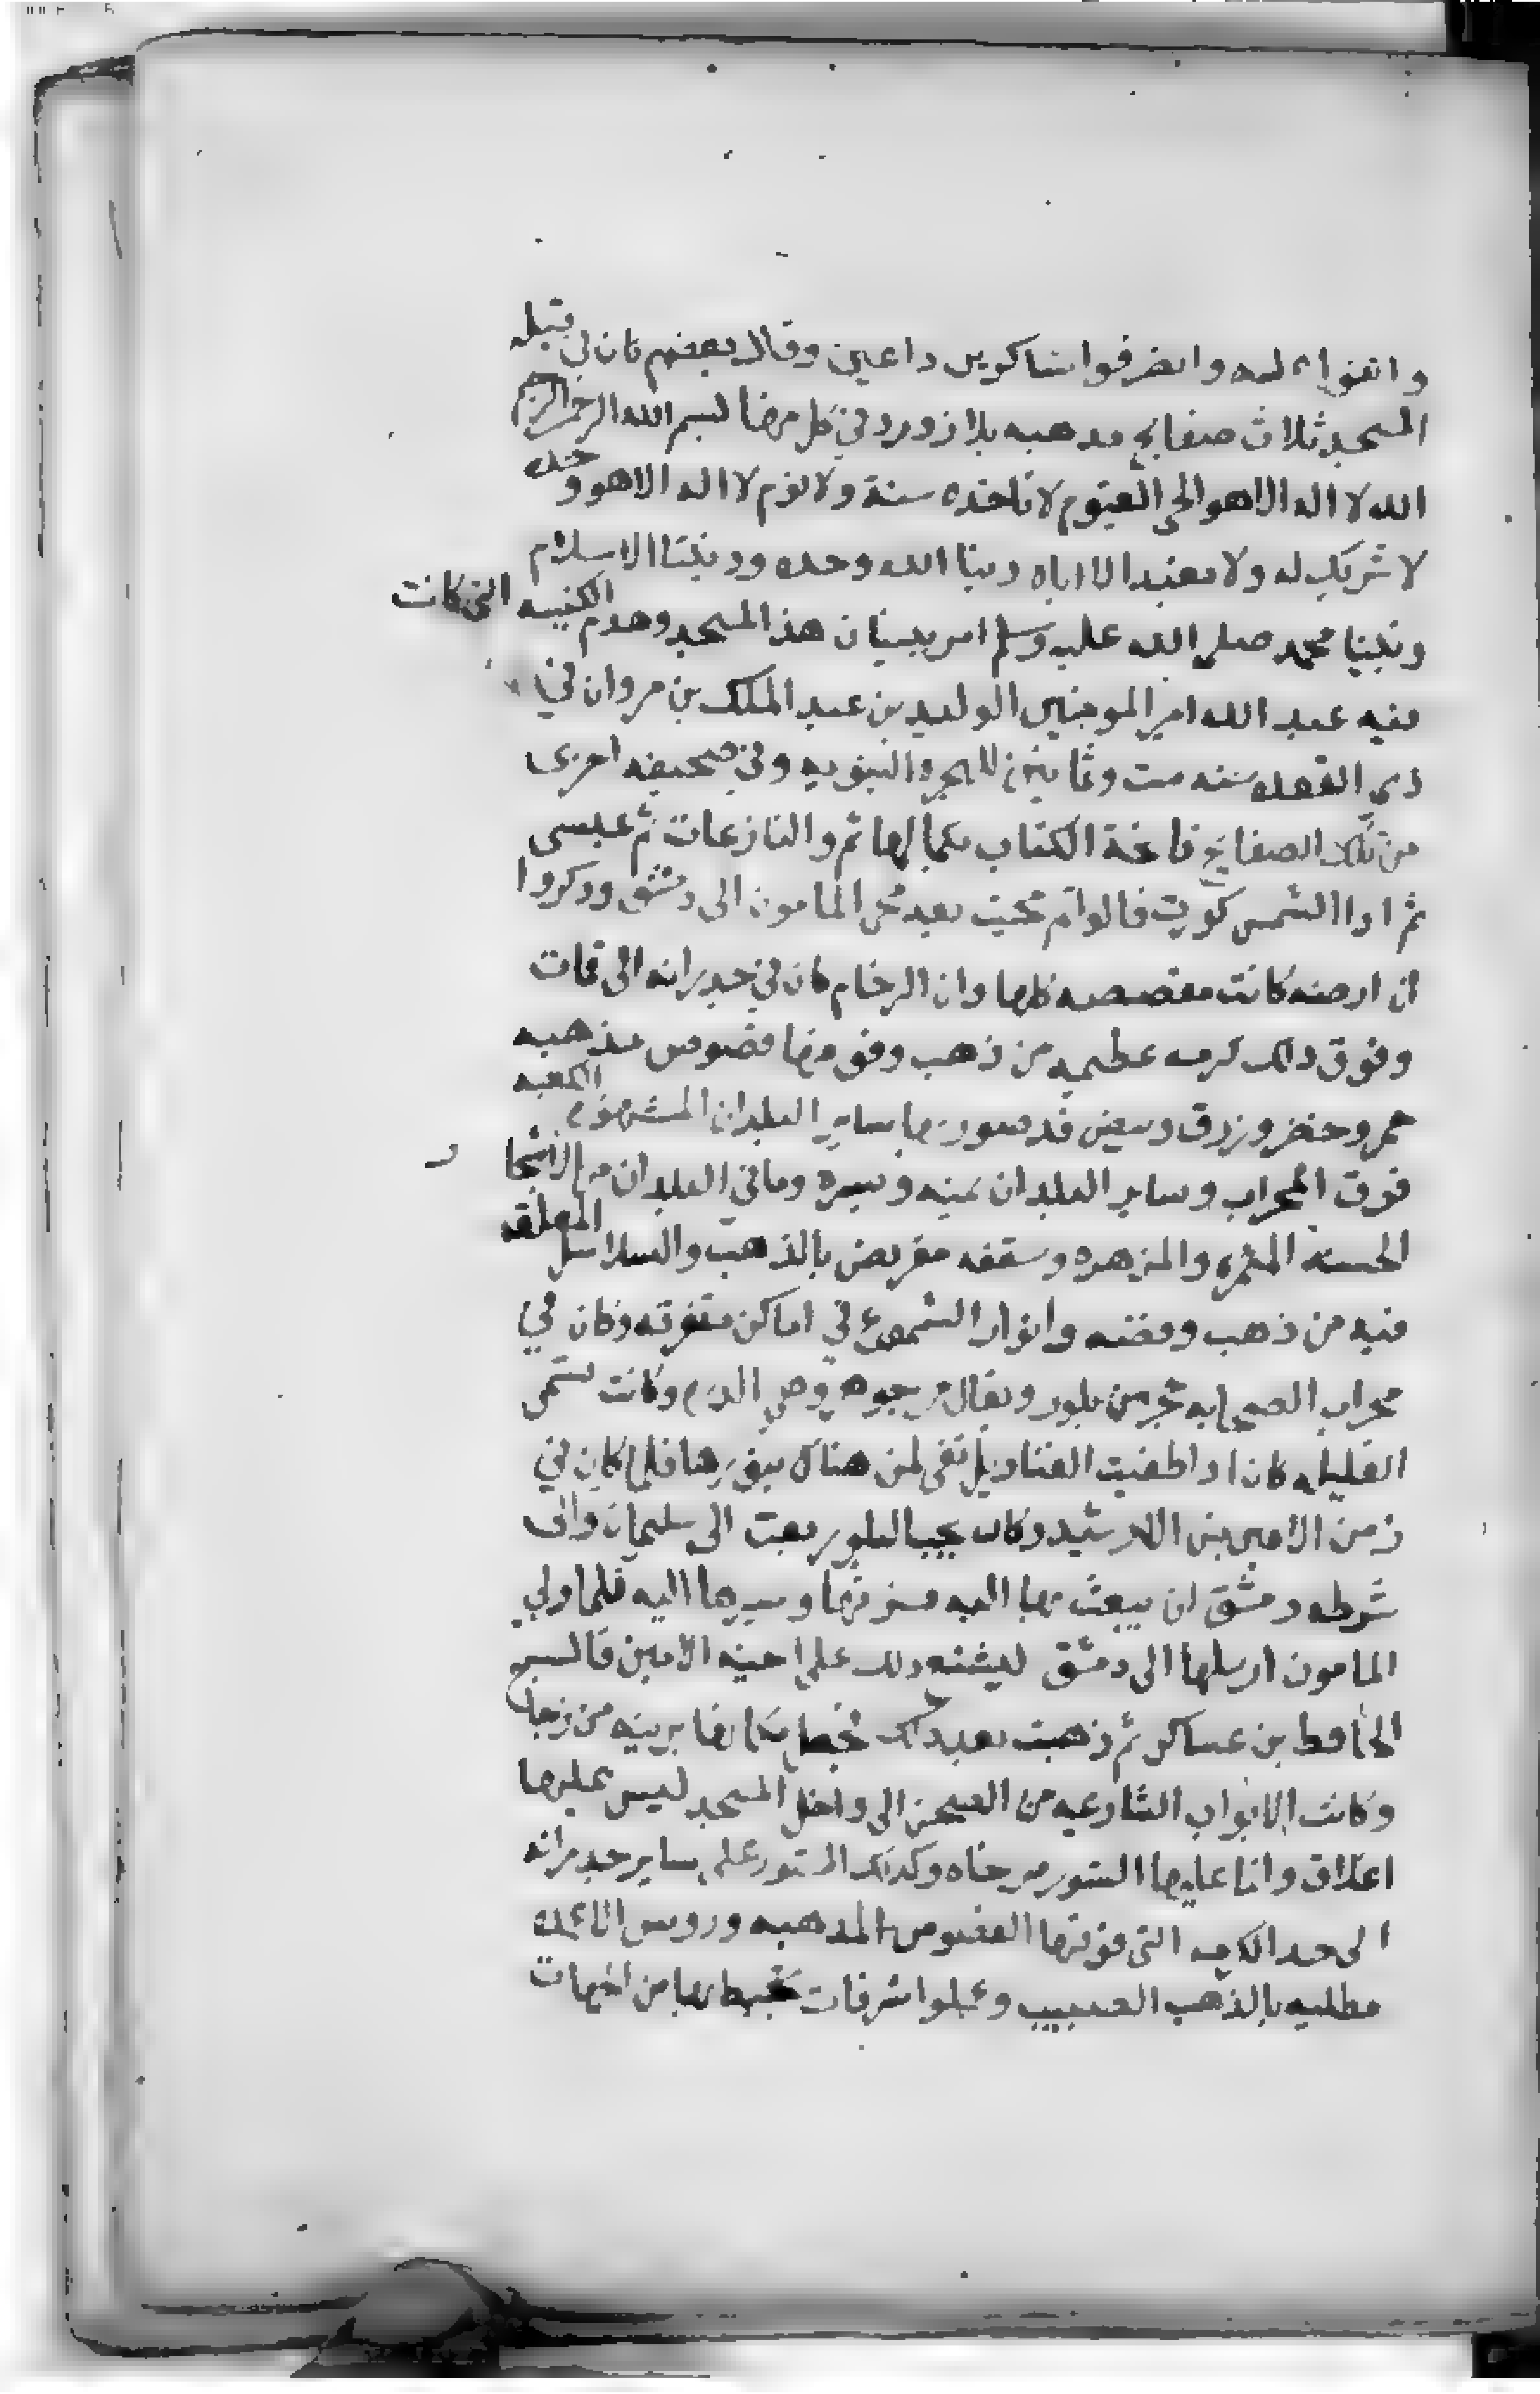 واثنوا عليه وانصرفوا شاكرين داعين وقال بعضهم كان في قبلة
المسجد ثلاث صفايح مدهبه بلازورد في كل منها بسم الله الرحمن الرحيم
الله لا اله الا هو الحي القيوم لا تاخذه سنة ولا نوم لا اله الا هو وحده
لا شريك له ولا نعبد الا اياه ربنا الله وحده وديننا الاسلام
ونبينا محمد صلى الله عليه وسلم امر ببنيان هذا المسجد وهدم الكنيسه التي كانت
فيه عبد الله امير المومنين الوليد بن عبد الملك بن مروان في
ذي القعده سنه ست وثمانين للهجره النبويه وفي صحيفه اخرى
من تلك الصفايح فاتحة الكتاب بكمالها ثم والنازعات ثم عبس
ثم اذا الشمس كورت قالوا ثم محيت بعد مجي المامون الى دمشق وذكروا
ان ارضه كانت مفصصه كلها وان الرخام كان في جدرانه الى قامات
وفوق ذلك كرمه عظيمه من ذهب وفوقها فصوص مذهبه
حمر وخضر وزرق وبيض قد صور بها ساير البلدان المشهوره الكعبه
فوق المحراب وساير البلدان يمنه ويسره وما في البلدان من الاشجار
الحسنه المثمره والمزهره وسقفه مقرنص بالذهب والسلاسل المعلقه
فيه من ذهب وفضه وانوار الشموع في اماكن متفرقه وكان في
محراب الصحابه حجر من بلور ويقال من جوهر وهي الدره وكانت تسمى
القليله كان اذا طفيت القناديل تضي لمن هناك بنورها فلما كان في
زمن الامين بن الرشيد وكان يحب البلور بعث الى سليمان والي
شرطه دمشق ان يبعث بها اليه فسرقها وسيرها اليه فلما ولي
المامون ارسلها الى دمشق ليشنع بذلك على اخيه الامين قال
الحافظ بن عساكر ثم ذهبت بعد ذلك فجعل مكانها برنيه من زجاج
وكانت الابواب الشارعه من الصحن الى داخل المسجد ليس عليها
اغلاق وانما عليها الستور مرخاه وكذلك الستور على ساير جدرانه
الى حد الكرمه التي فوقها الفصوص المدهبه وروس الاعمده
مطليه بالذهب الصبيب وعملوا شرفات تحيط بها من الجهات